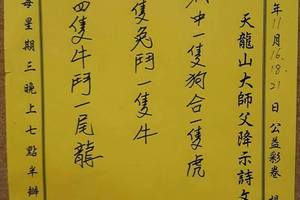 年11月16.18.21日公益彩卷
天龍山大師父降示詩文
中一隻狗合一隻虎
隻兔鬥一隻牛
四隻牛鬥一尾龍
每星期三晚上七點半辦